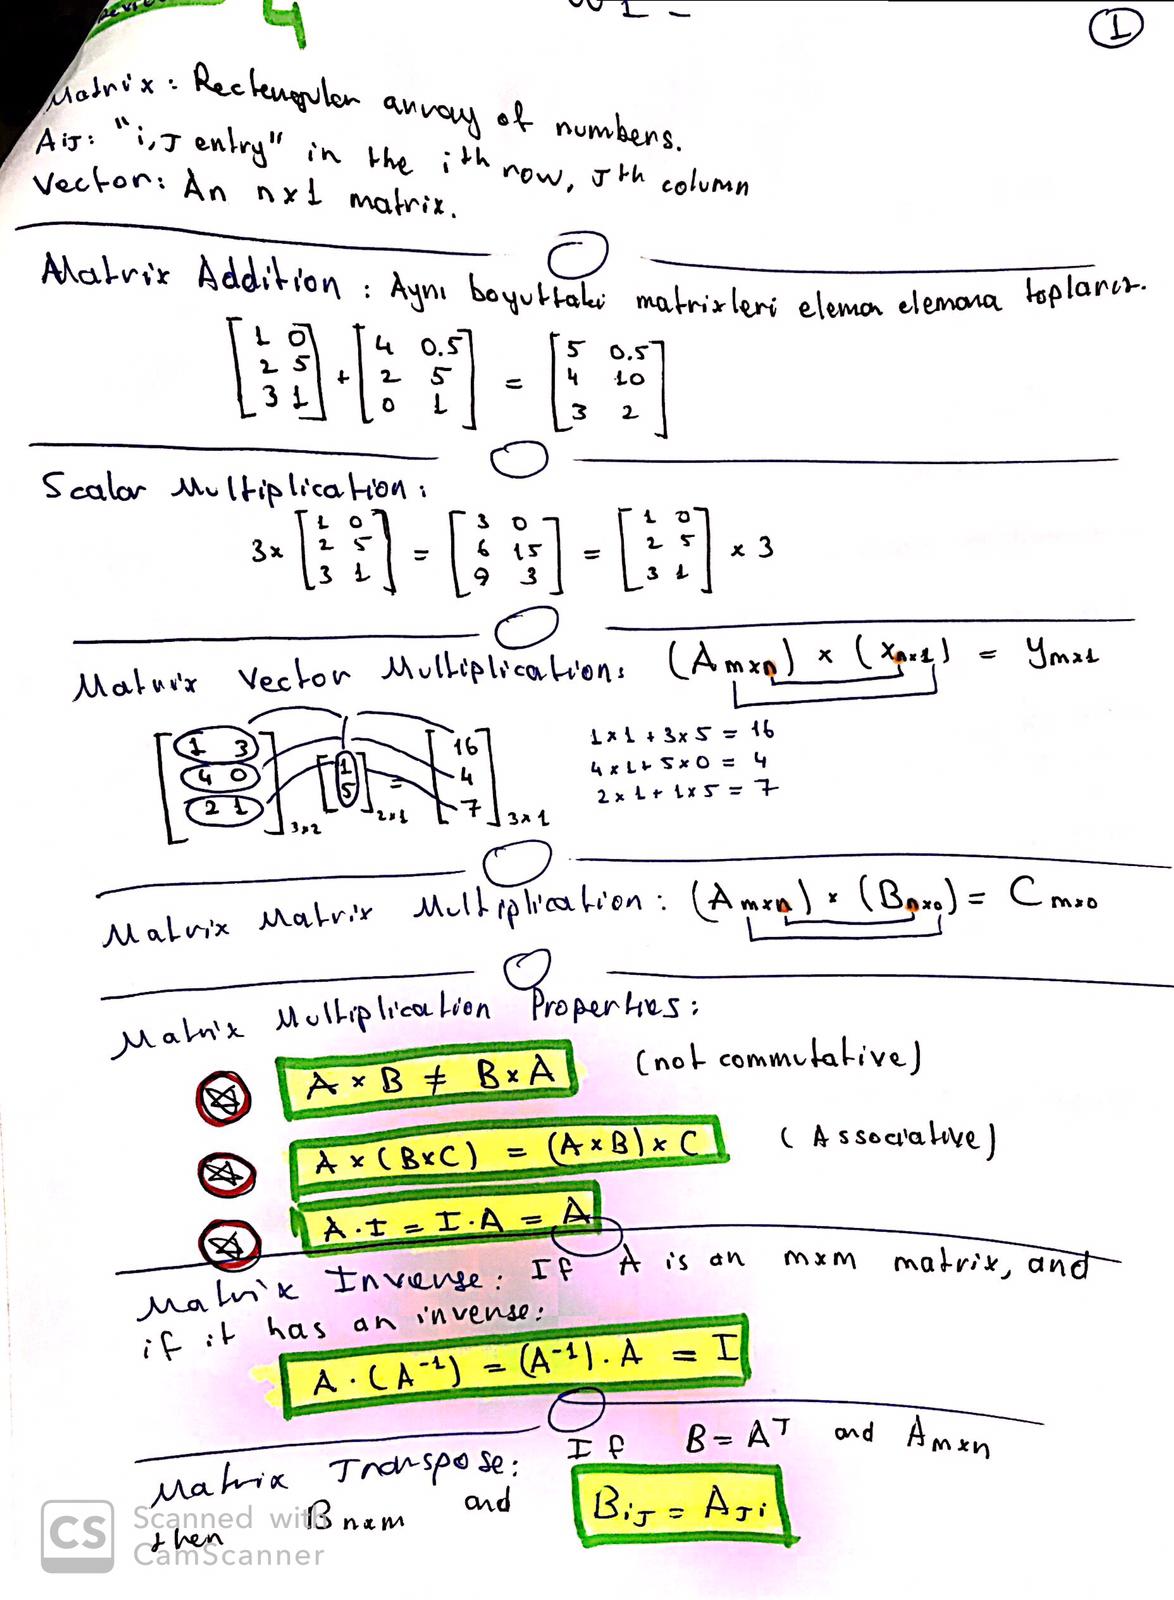 4
1
Matrix: Rectengular array of numbers.
Aij: "i,J entry" in the ith row, Jth column
Vector: An nx1 matrix.
Matrix Addition: Aynı boyuttaki matrixleri eleman elemana toplarız.
[1 0; 2 5; 3 1] + [4 0.5; 2 5; 0 1] = [5 0.5; 4 10; 3 2]
Scalar Multiplication:
3x [1 0; 2 5; 3 1] = [3 0; 6 15; 9 3] = [1 0; 2 5; 3 1] x 3
Matrix Vector Multiplication: (Amxn) x (xnx1) = ymx1
[1 3; 4 0; 2 1]3x2 [1; 5]2x1 = [16; 4; 7]3x1
1x1 + 3x5 = 16
4x1 + 5x0 = 4
2x1 + 1x5 = 7
Matrix Matrix Multiplication: (Amxn) x (Bnxo) = Cmxo
Matrix Multiplication Properties:
A x B ≠ B x A (not commutative)
A x (BxC) = (A x B) x C (Associative)
A.I = I.A = A
Matrix Inverse: If A is an mxm matrix, and
if it has an inverse:
A.(A-1) = (A-1).A = I
Matrix Transpose: If B = AT and Amxn
then Bnxm and BiJ = AJi
CS Scanned with
CamScanner